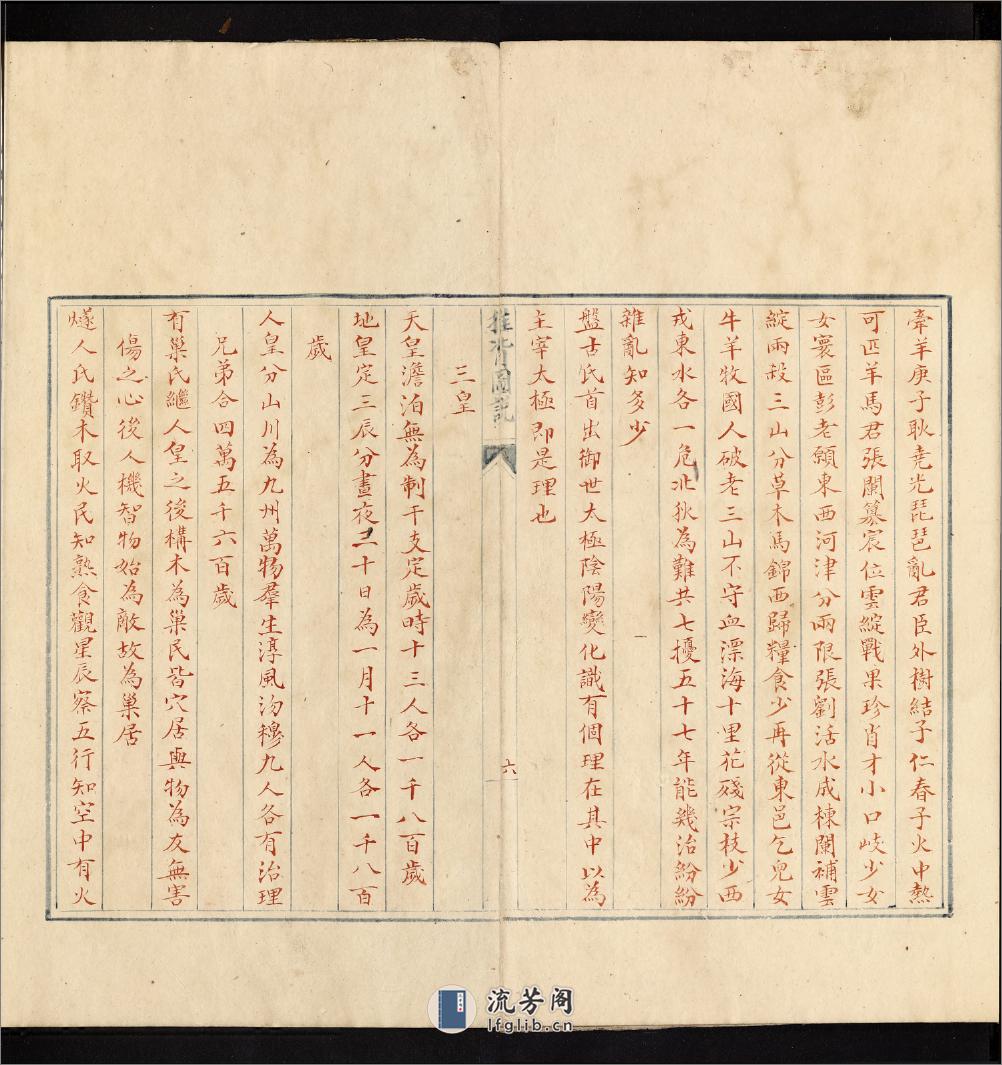 牽羊庚子耿堯光琵琶亂君臣外樹結子仁春子火中熱
可匹羊馬君張闌篡宸位雲綻戰果珍肖才小口歧少女
女寰區彭老頟東西河津分兩限張劉活水成棟闌補雲
綻兩殺三山分草木馬錦西歸糧食少再從東邑乞兒女
牛羊牧國人破老三山不守血漂海十里花殘宗枝少西
戎東水各一危北狄為難共七擾五十七年能幾治紛紛
雜亂知多少
盤古氏首出御世太極陰陽變化識有個理在其中以為
主宰太極即是理也
推背圖說
六
三皇
天皇澹泊無為制干支定歲時十三人各一千八百歲
地皇定三辰分晝夜三十日為一月十一人各一千八百
歲
人皇分山川為九州萬物羣生淳風沕穆九人各有治理
兄弟合四萬五千六百歲
有巢氏繼人皇之後構木為巢民皆穴居與物為友無害
傷之心後人機智物始為敵故為巢居
燧人氏鑽木取火民知熟食觀星辰察五行知空中有火
流芳阁
lfglib.cn